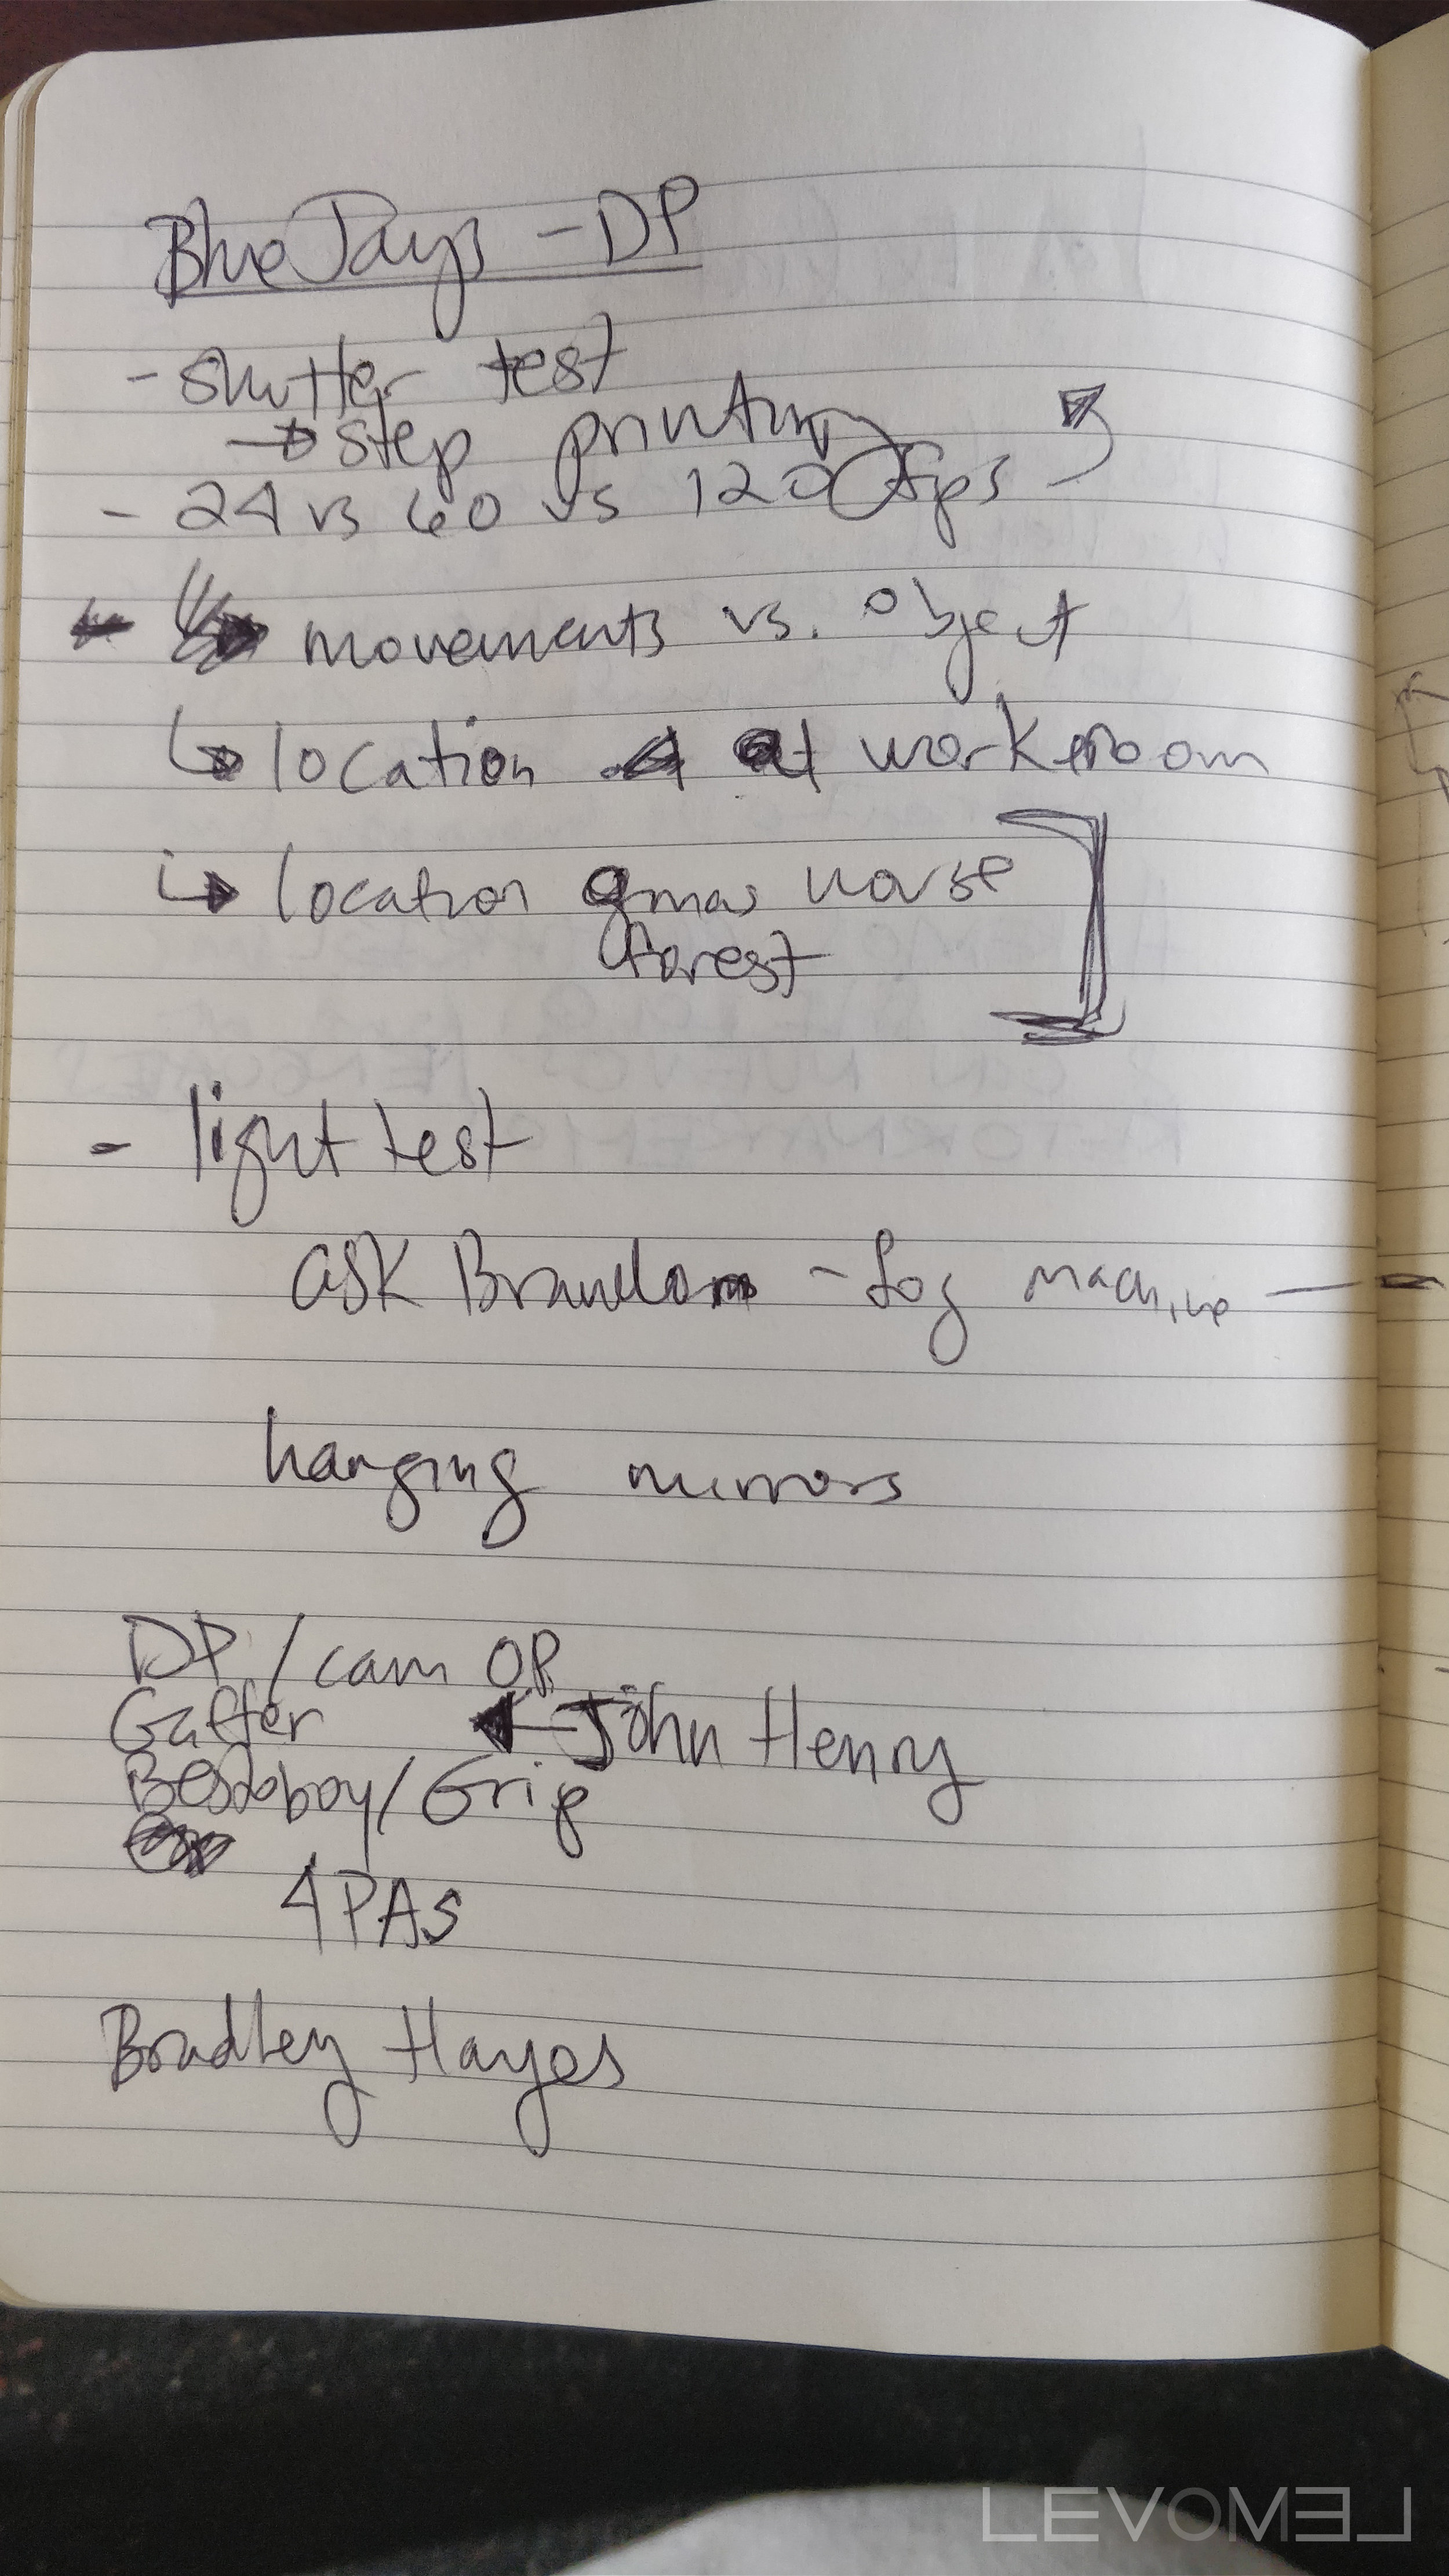 Blue Jays - DP
- shutter test
→ step printing
- 24 vs 60 vs 120 fps
- movements vs. object
↳ location at workroom
↳ location gmas house
forest
- light test
ask Brandon - fog machine -
hanging mirrors
DP / cam OP.
Gaffer ← John Henry
Bestboy / Grip
4 PAs
Bradley Hayes
LEVOMEL